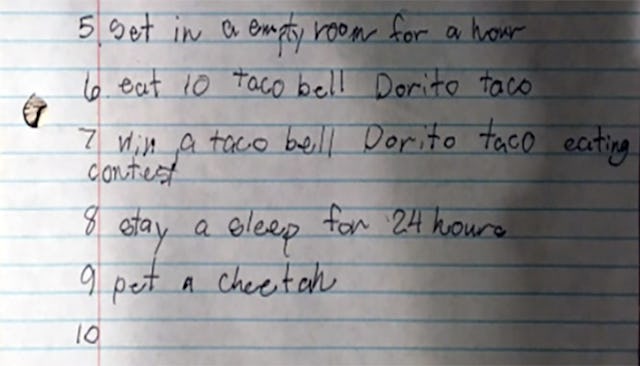 5. set in a empty room for a hour
6. eat 10 taco bell Dorito taco
7 win a taco bell Dorito taco eating
contest
8 stay a sleep for 24 hours
9 pet a cheetah
10